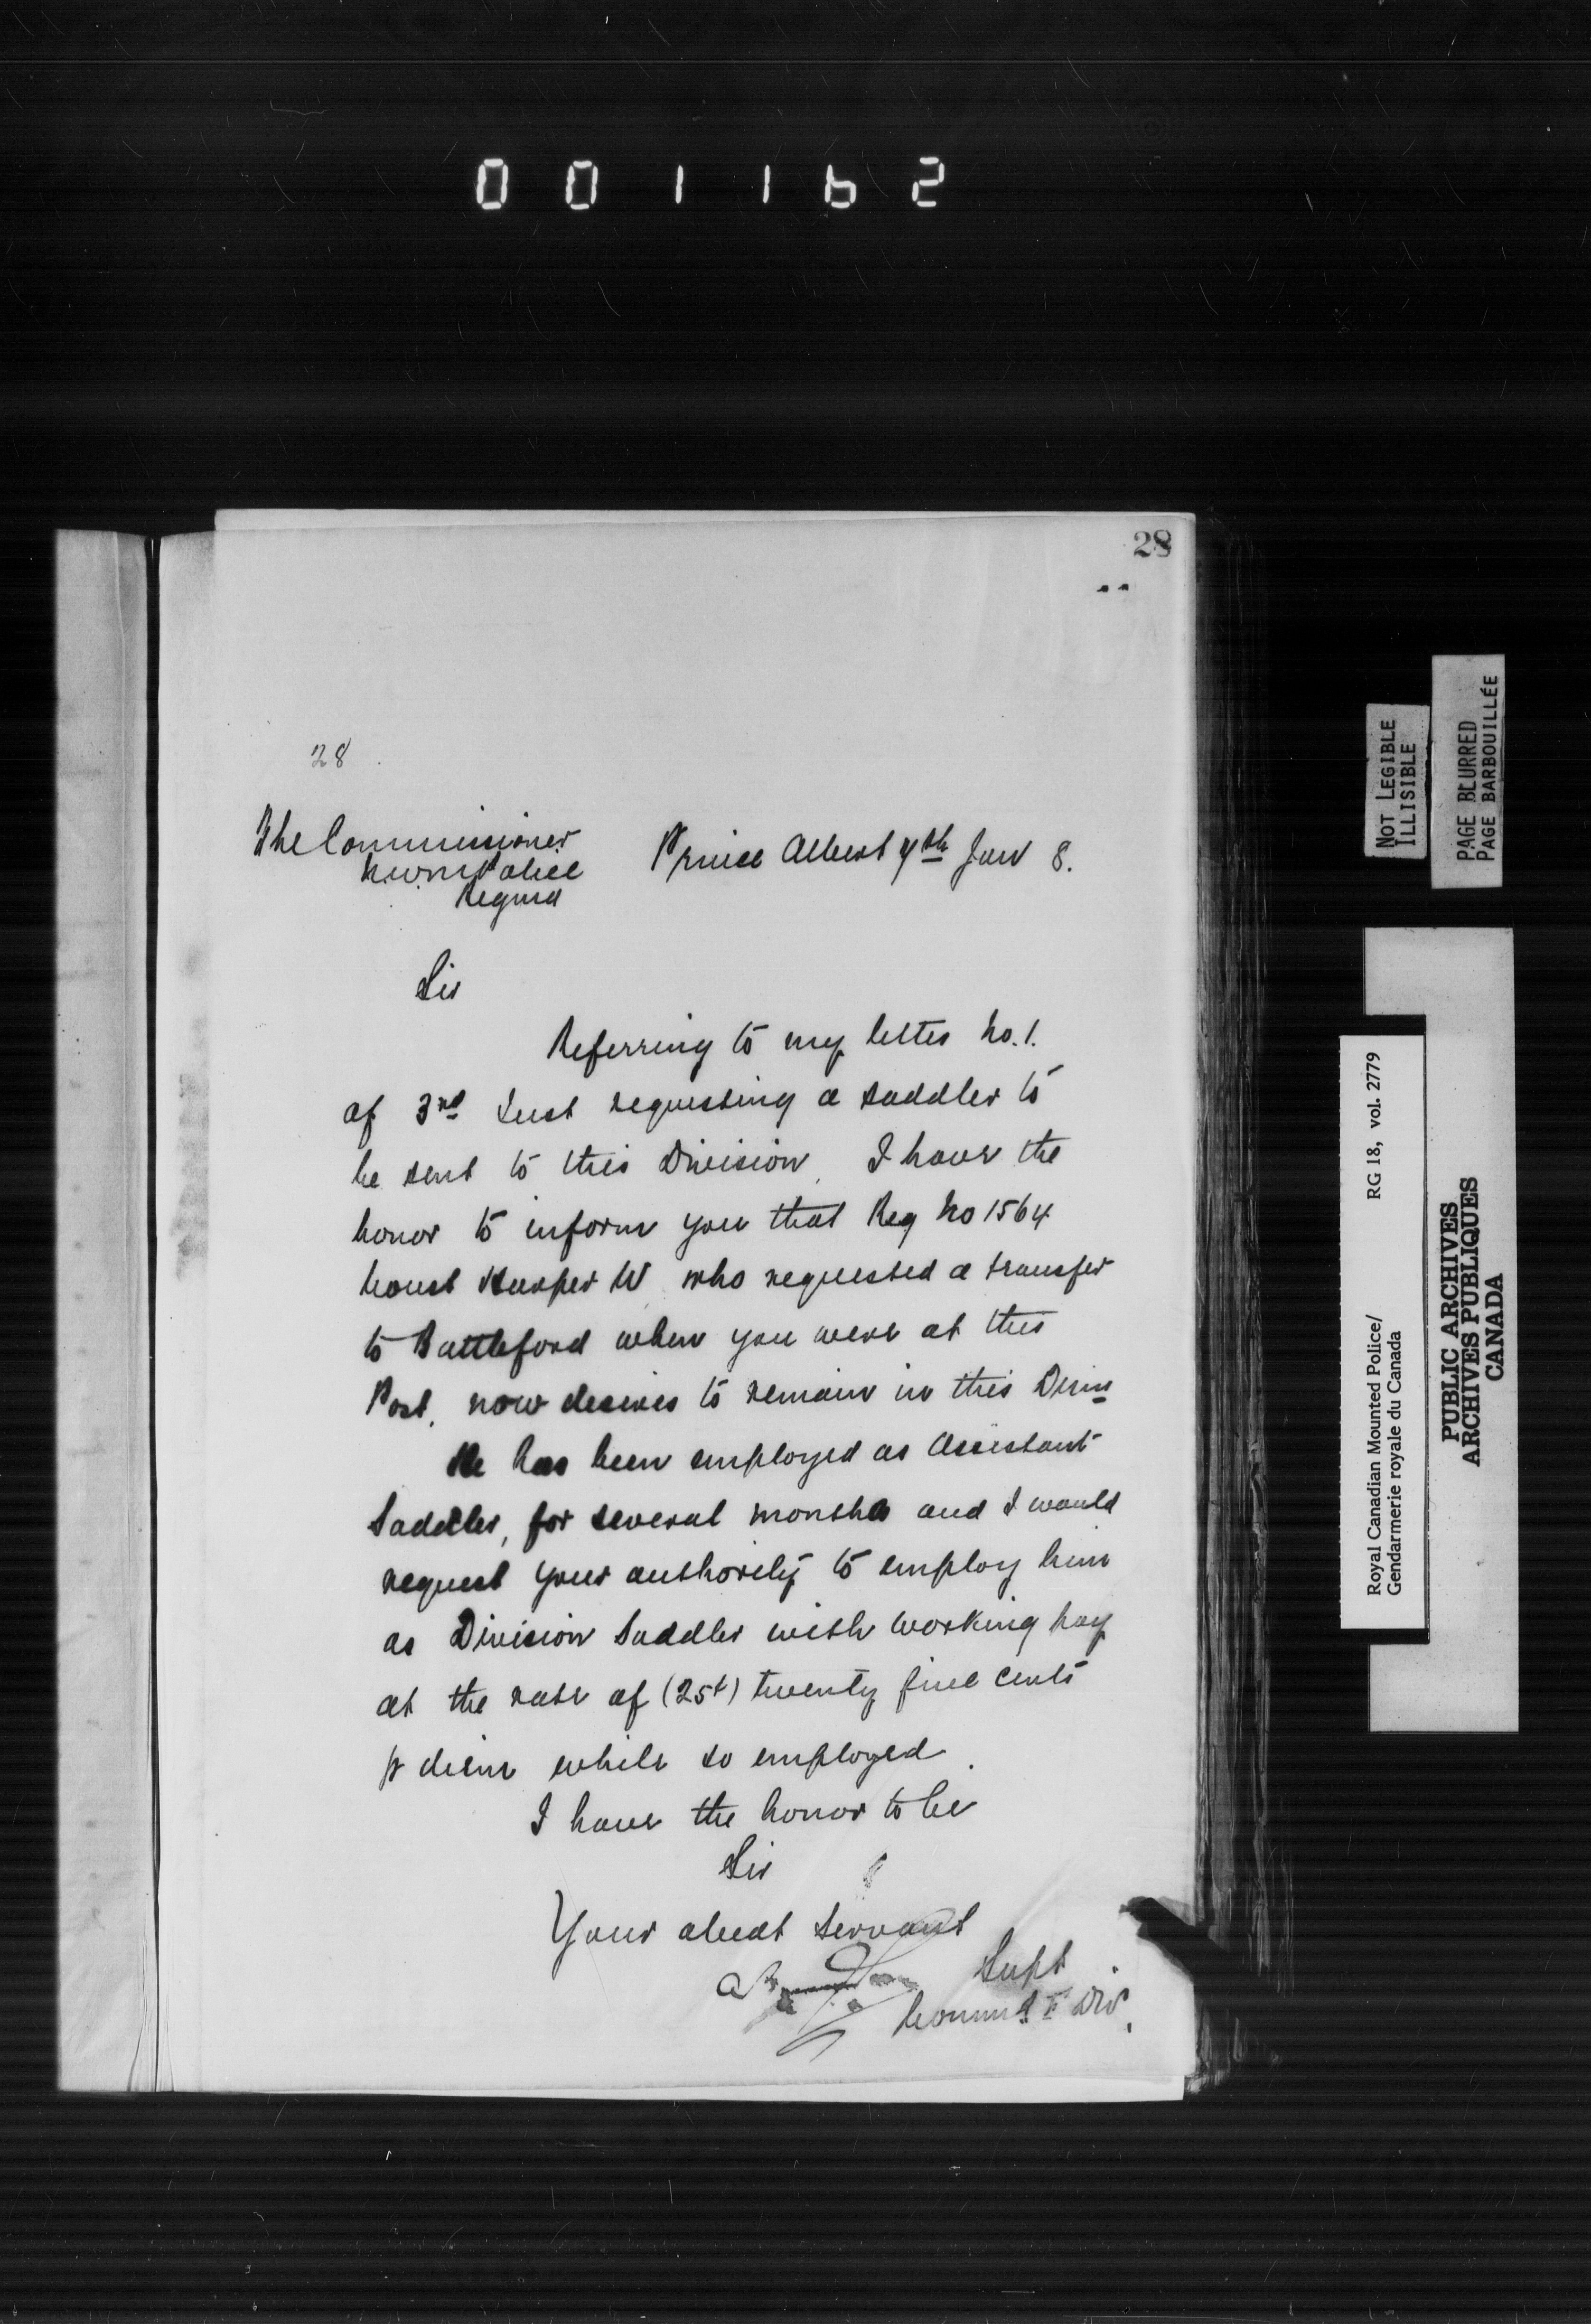 001162
28
28
The Commissioner
N.W.M. Police
Regina
Prince Albert 7th Jan 8.
Sir
Referring to my letter No. 1.
of 3rd Inst requesting a saddler to
be sent to this Division, I have the
honor to inform you that Reg No 1564
Const Harper W. who requested a transfer
to Battleford when you were at this
Post, now desires to remain in this Divn
He has been employed as Assistant
Saddler, for several months and I would
request your authority to employ him
as Division Saddler with working pay
at the rate of (25¢) twenty five cents
pr diem while so employed.
I have the honor to be
Sir
Your obedt servant
Supt
Commdg F Div.
NOT LEGIBLE
ILLISIBLE
PAGE BLURRED
PAGE BARBOUILLÉE
Royal Canadian Mounted Police/
Gendarmerie royale du Canada
RG 18, vol. 2779
PUBLIC ARCHIVES
ARCHIVES PUBLIQUES
CANADA